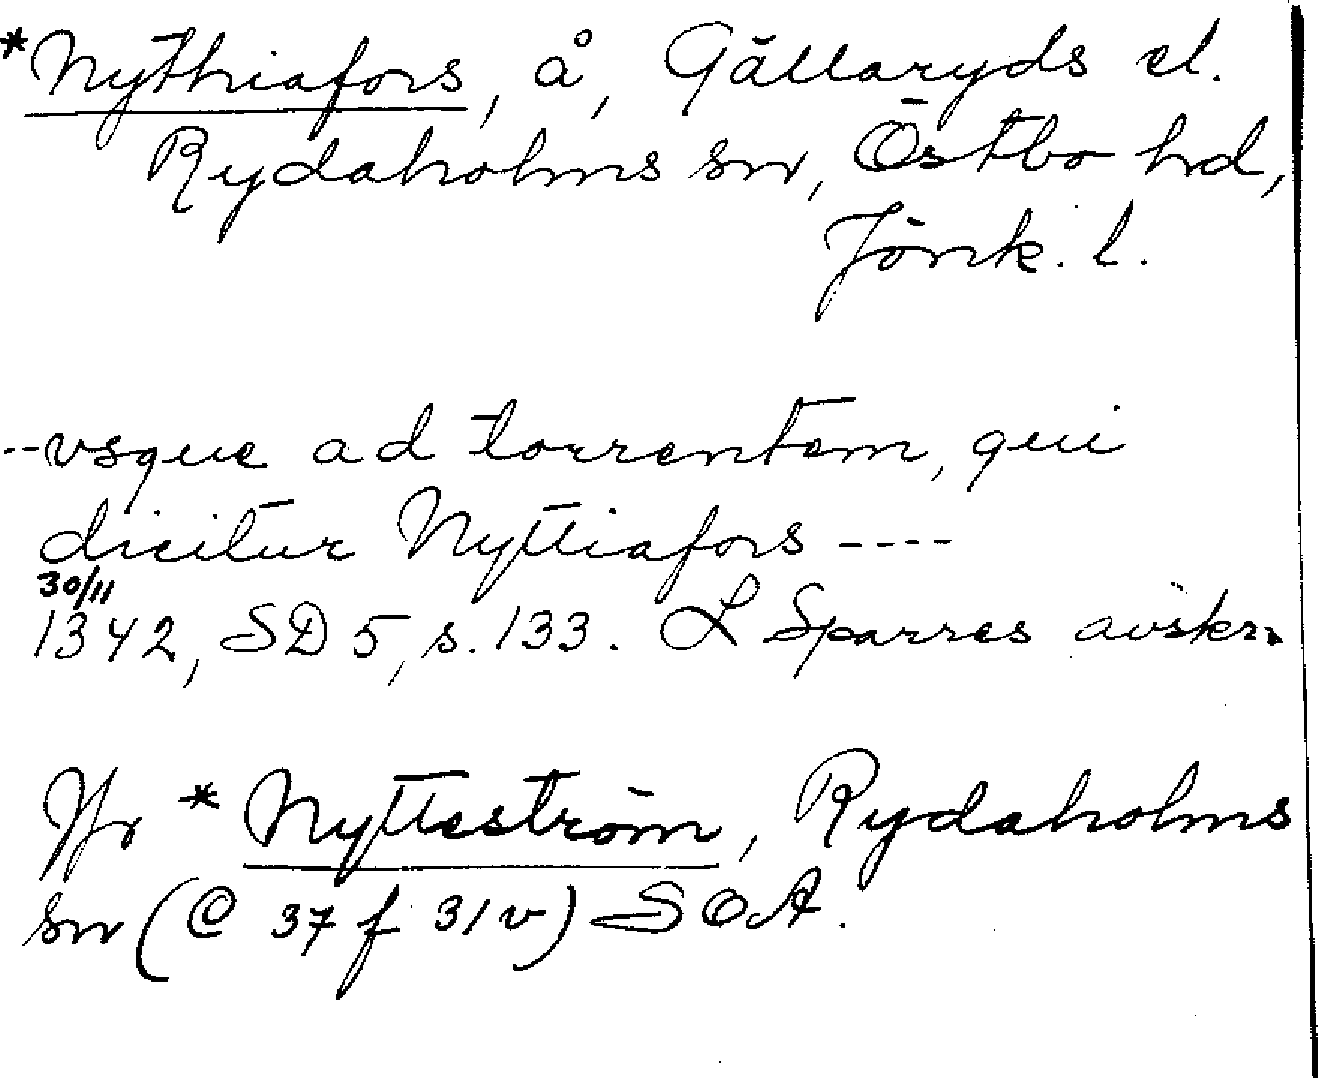 *Nythiafors, å, Gällaryds el.
Rydaholms sn, Östbo hd,
Jönk. l.
--vsque ad torrentem, qui
dicitur Nyttiafors ----
30/11
1342, SD 5, s. 133. L Sparres avskr.
Jfr *Nytteström, Rydaholms
sn (C 37 f 31v) SOA.